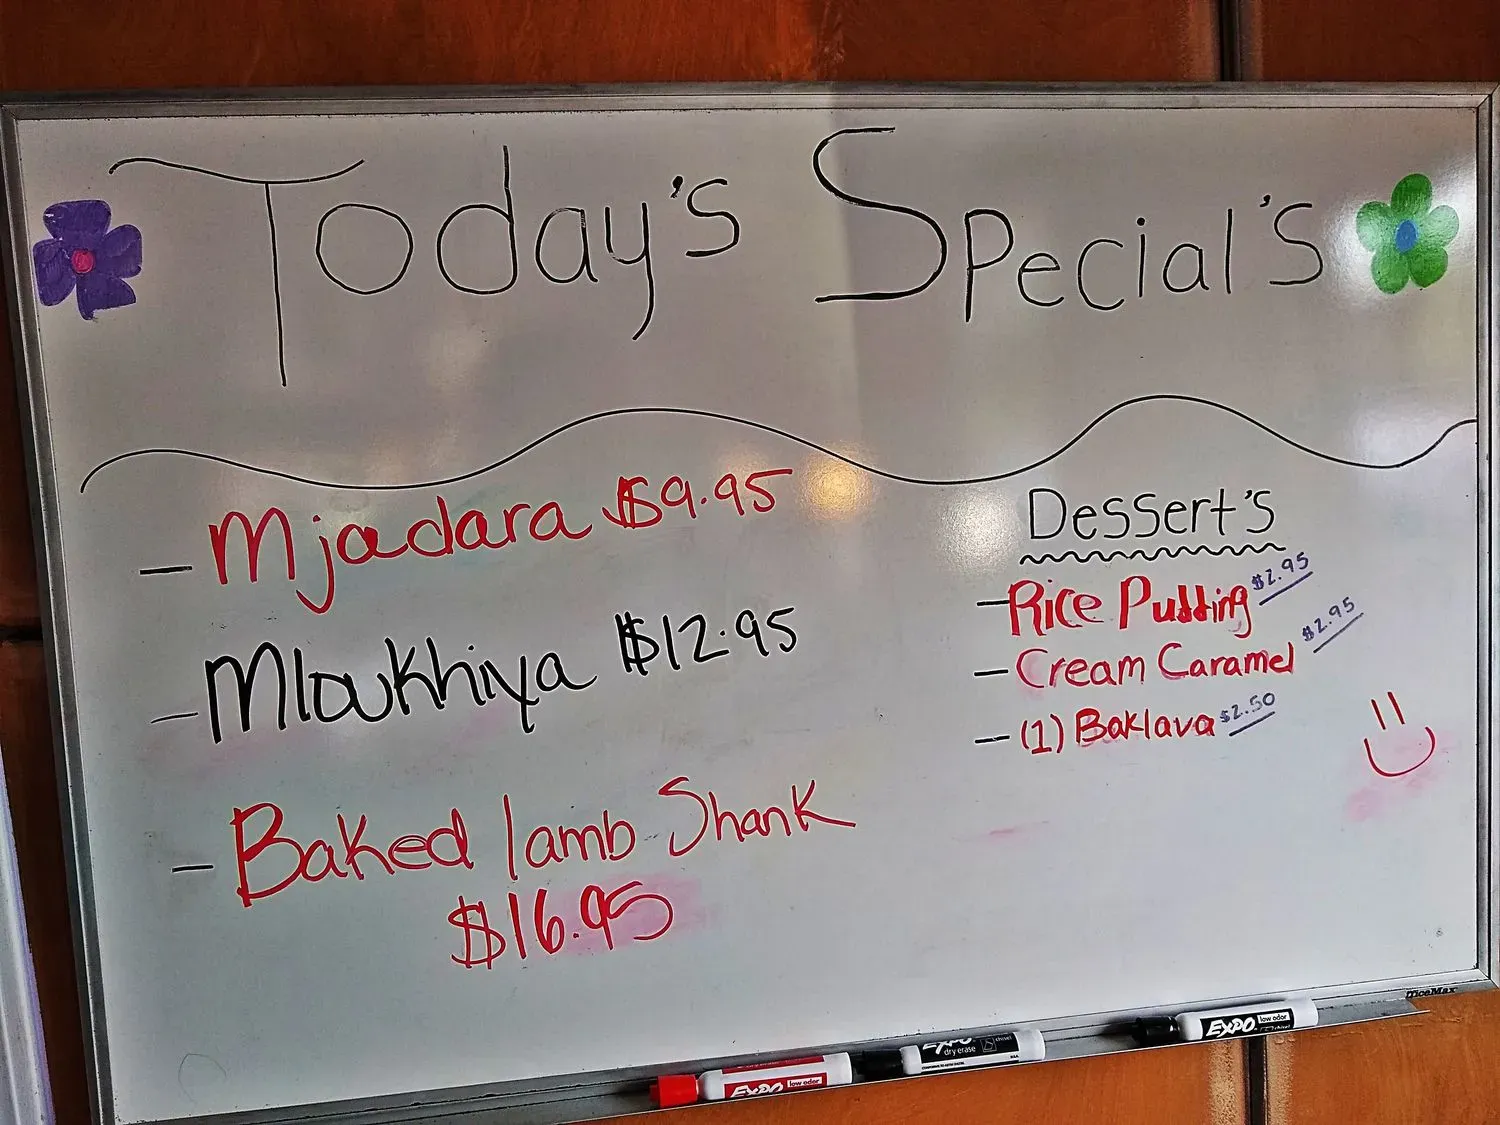 Today's Special's
- Mjadara $9.95
- Mloukhiya $12.95
- Baked lamb Shank
$16.95
Dessert's
- Rice Pudding $2.95
- Cream Caramel $2.95
- (1) Baklava $2.50
OfficeMax
EXPO low odor
EXPO dry erase chisel
EXPO low odor chisel